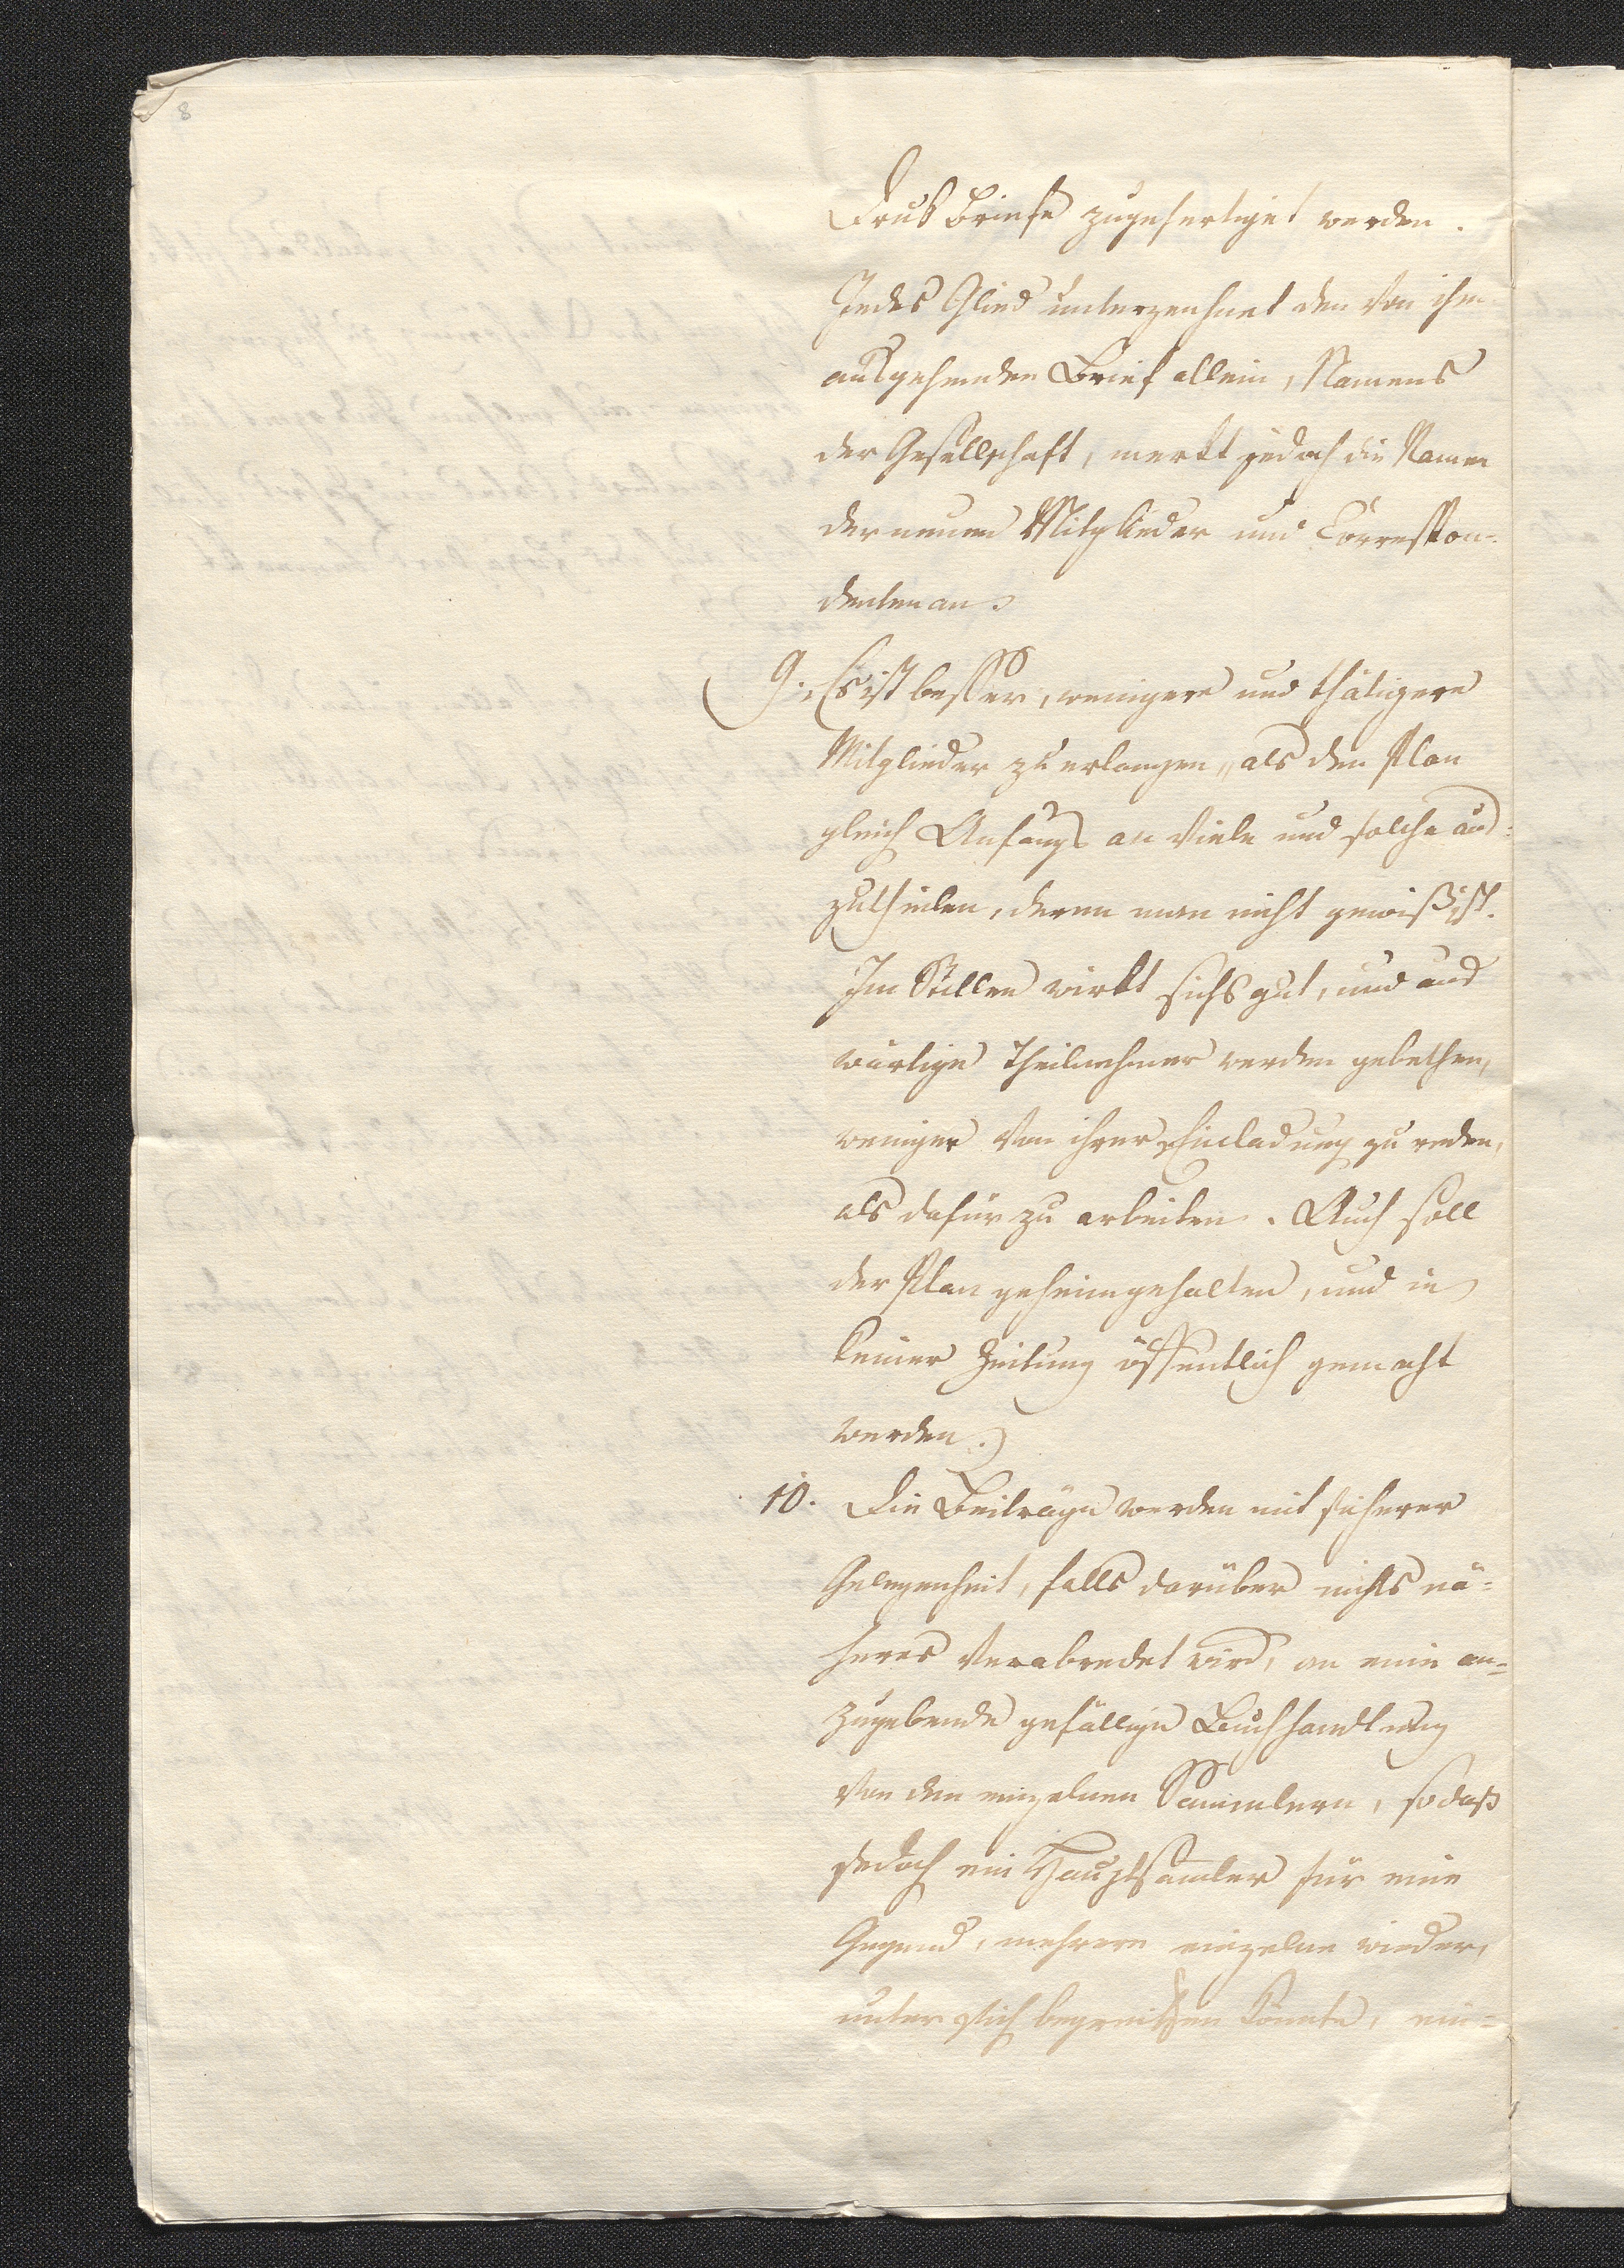 8
Drukbriefe zugefertiget werden.
Jedes Glied unterzeichnet den von ihm
ausgehenden Brief allein, Namens
der Gesellschaft, merkt jedoch die Namen
der neuen Mitglieder und Correspon-
denten an.
(9. Es ist besser, wenigere und thätigere
Mitglieder zu erlangen, als den Plan
gleich Anfangs an viele und solche aus-
zutheilen, deren man nicht gewiß ist.
Im Stillen wirkt sichs gut, und aus
wärtige Theilnehmer werden gebethen,
weniger von ihrer Einladung zu reden,
als dafür zu arbeiten. Auch soll
der Plan geheimgehalten, und in
keiner Zeitung öffentlich gemacht
werden.)
10. Die Beiträge werden mit sicherer
Gelegenheit, falls darüber nichts nä-
heres verabredet wird, an eine an-
zugebende gefällige Buchhandlung
von den einzelnen Sammlern, so daß
jedoch ein Hauptsammler für eine
Gegend, mehrere einzelne wieder,
unter sich begreiffen könnte, ein-